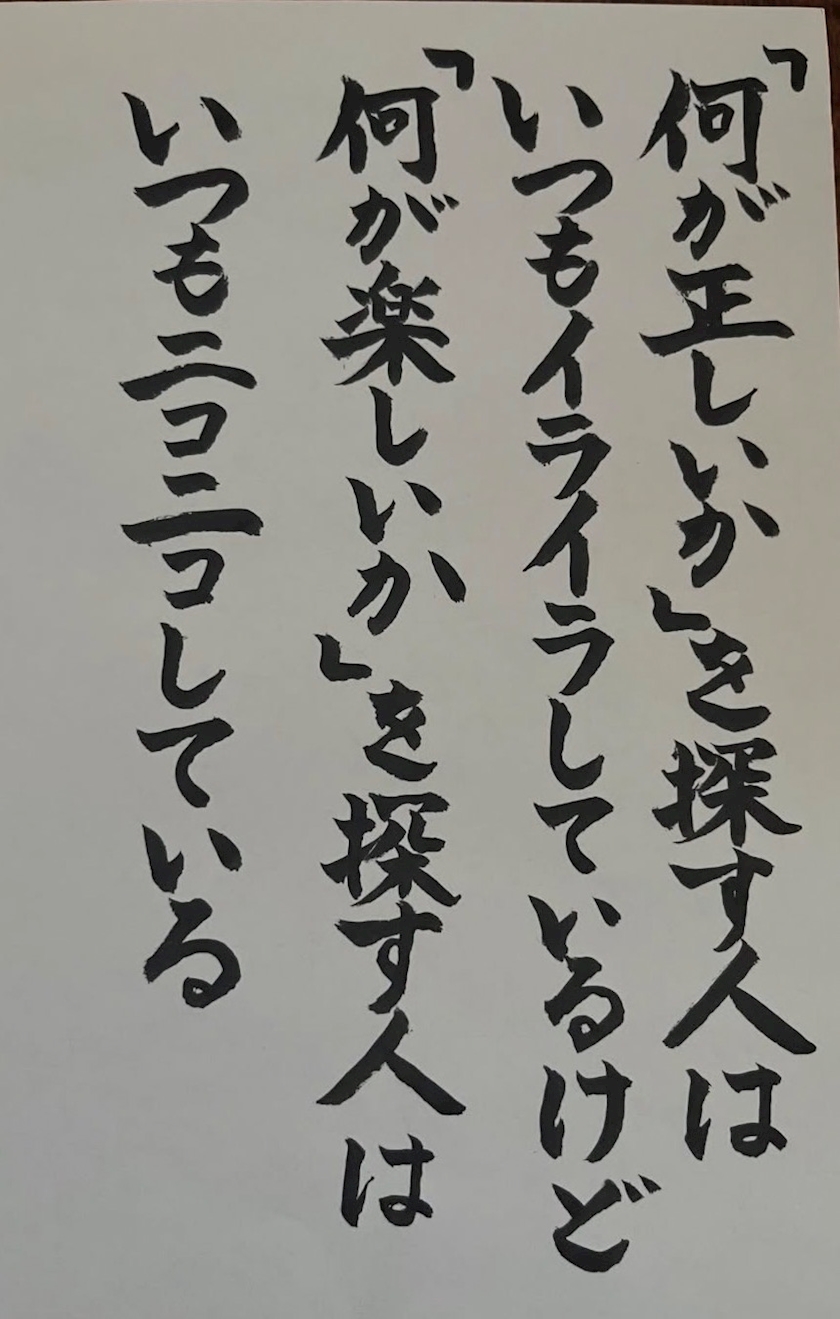 「何が正しいか」を探す人は
いつもイライラしているけど
「何が楽しいか」を探す人は
いつもニコニコしている